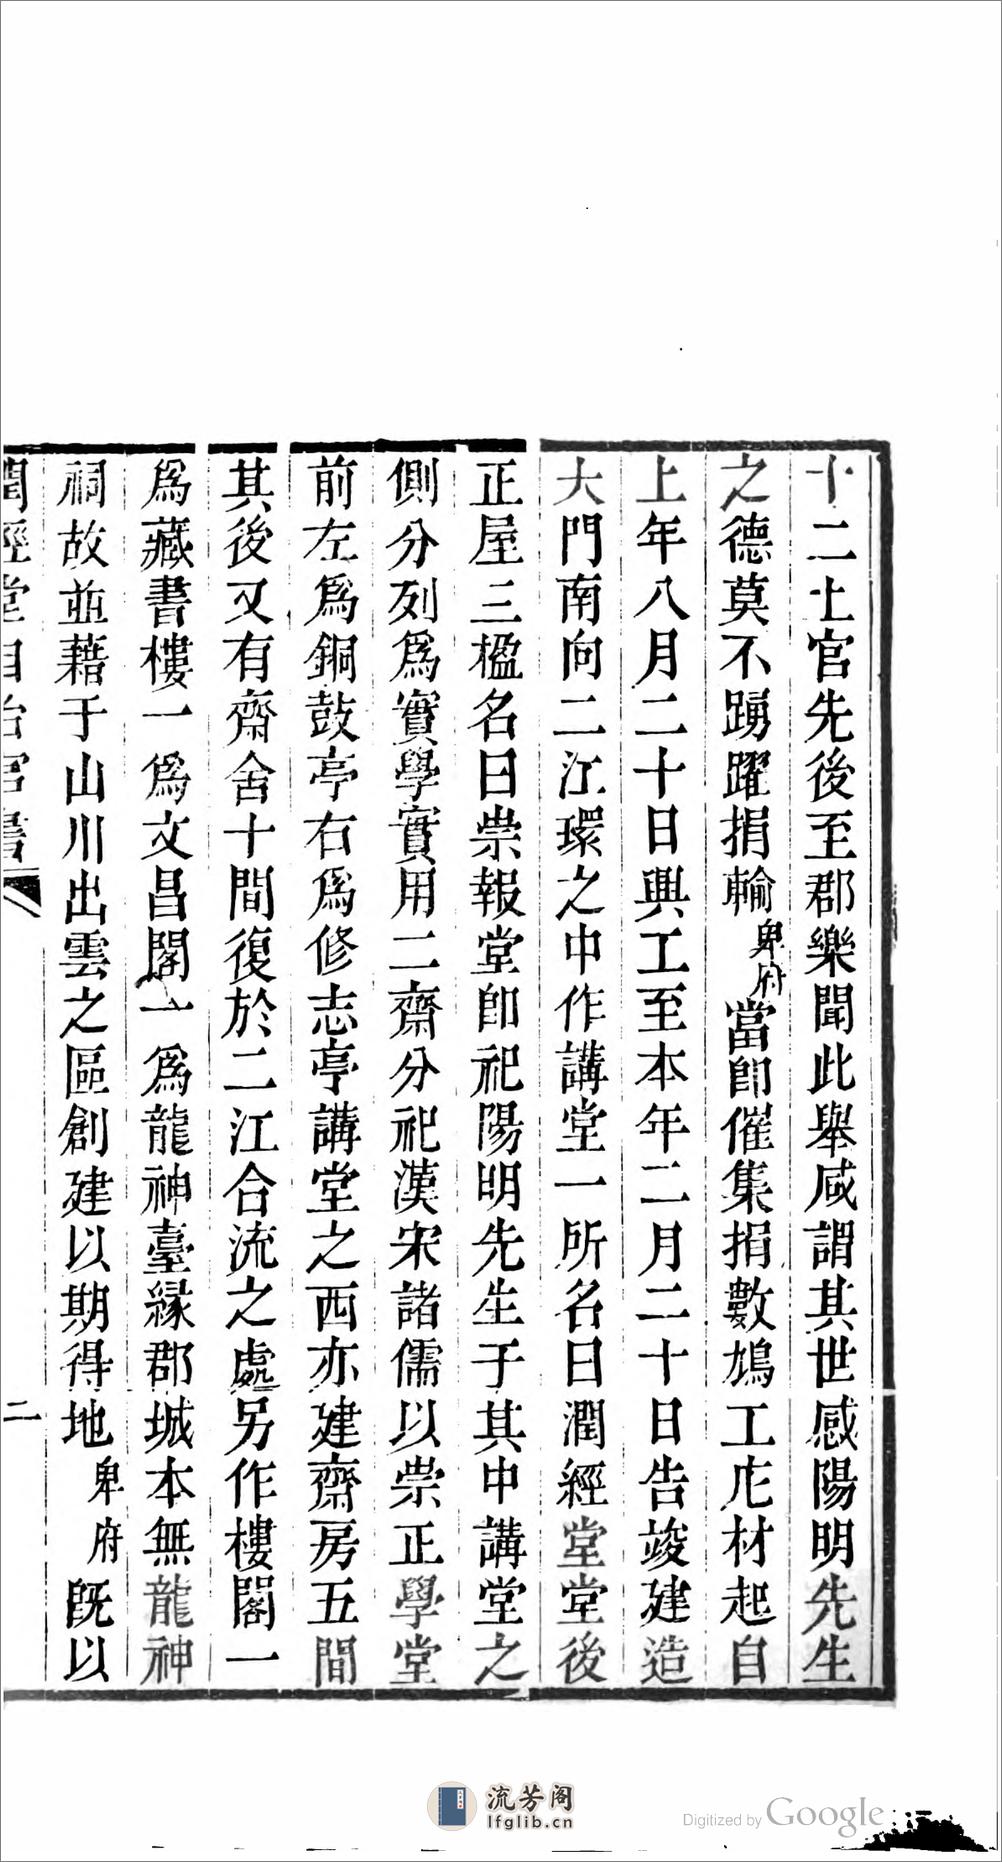 十二土官先後至郡樂聞此舉咸謂其世感陽明先生
之德莫不踴躍捐輸卑府當卽催集捐數鳩工庀材起自
上年八月二十日興工至本年二月二十日告竣建造
大門南向二江環之中作講堂一所名曰潤經堂堂後
正屋三楹名曰崇報堂卽祀陽明先生于其中講堂之
側分列爲實學實用二齋分祀漢宋諸儒以崇正學堂
前左爲銅鼓亭右爲修志亭講堂之西亦建齋房五間
其後又有齋舍十間復於二江合流之處另作樓閣一
爲藏書樓一爲文昌閣一爲龍神臺緣郡城本無龍神
祠故並藉于山川出雲之區創建以期得地卑府旣以
閏經堂自治官書
二
流芳阁
lfglib.cn
Digitized by Google